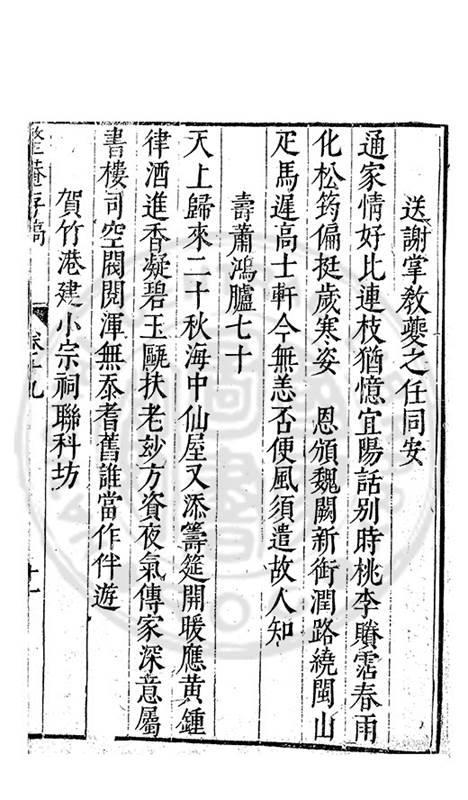 送謝掌教夔之任同安
通家情好比連枝猶憶宜陽話別時桃李賸霑春雨
化松筠偏挺歲寒姿 恩頒魏闕新銜潤路繞閩山
疋馬遲高士軒今無恙否便風須遣故人知
壽蕭鴻臚七十
天上歸來二十秋海中仙屋又添籌筵開暖應黃鍾
律酒進香凝碧玉甌扶老玅方資夜氣傳家深意屬
書樓司空閥閱渾無忝耆舊誰當作伴遊
賀竹港建小宗祠聯科坊
整菴存稿 卷十九 十一